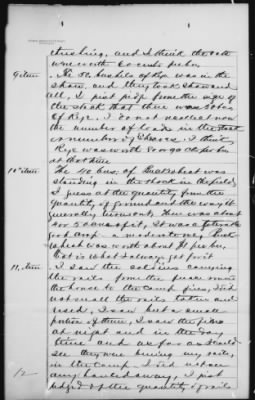 thrashing, and I think the oats
were worth 60 cents per bu.
9 item The 30 bushels of Rye was in the
and they took straw and
all, I just judge from the size of
the stack that there was 30 bu
of Rye. I do not recollect now
the number of loads in the stack
or number of shares. I think
Rye was worth 80 or 90 cts per bu
at that time
10" item The 40 bus. of Buckwheat was
standing in the shock in the field,
I guess at the quantity from the
quantity of ground and the way it
generally turns out. There was about
or 5 acres of it, It was a tolerable
good crop - a moderate one, Buck
wheat was worth about $1 per bu,
that is what I always got for it
11, item I saw the soldiers carrying
the rails from the fence near
the house to the camp fires, I did
not see all the rails taken and
used, I saw but a small
portion of them, I saw the fires
at night and in the day
time and as far as I could
see they were burning my rails,
in the camp - I did not see
any hauled away, I just
judged of the quantity of rails
12